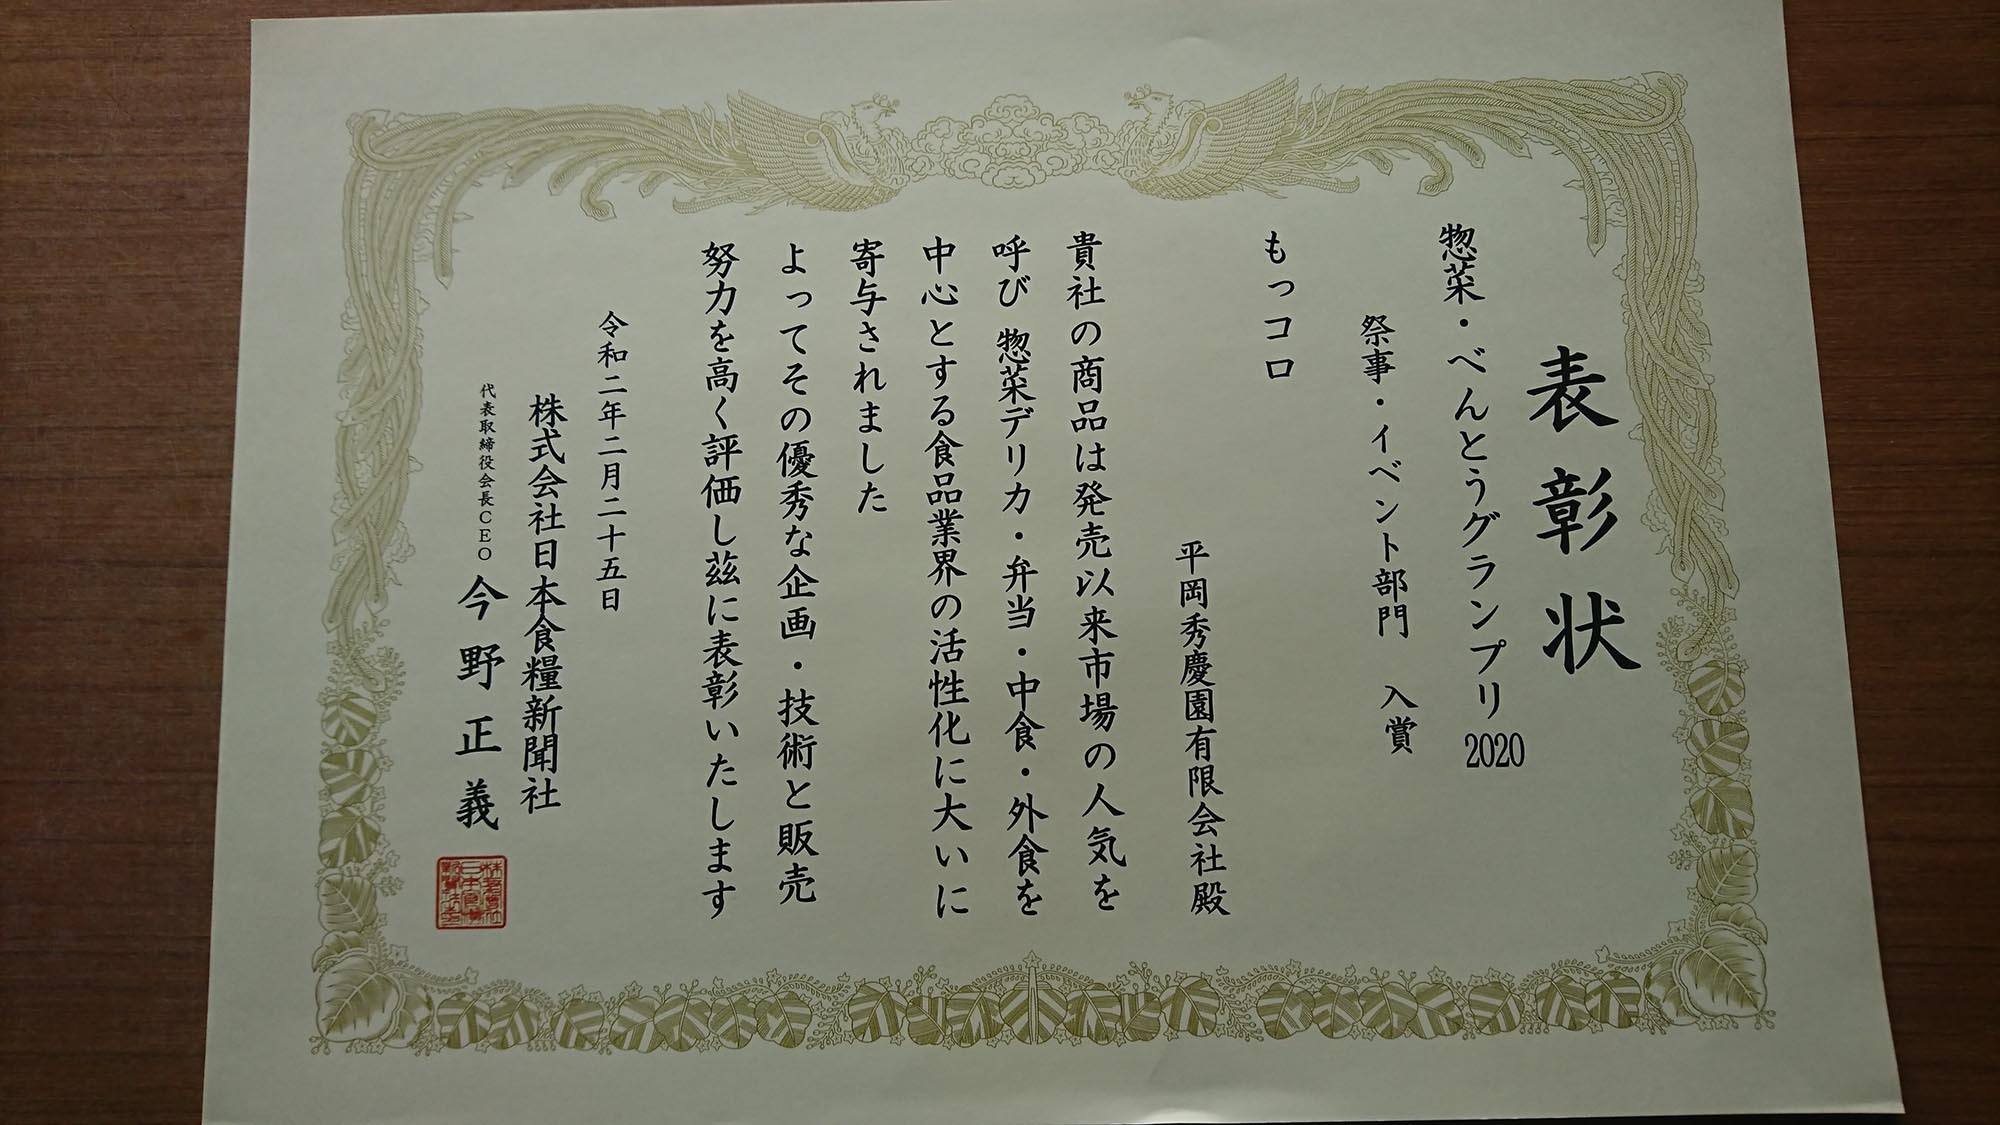 表彰状
惣菜・べんとうグランプリ2020
祭事・イベント部門 入賞
もっコロ
平岡秀慶園有限会社殿
貴社の商品は発売以来市場の人気を
呼び 惣菜デリカ・弁当・中食・外食を
中心とする食品業界の活性化に大いに
寄与されました
よってその優秀な企画・技術と販売
努力を高く評価し茲に表彰いたします
令和二年二月二十五日
株式会社日本食糧新聞社
代表取締役会長CEO 今野正義